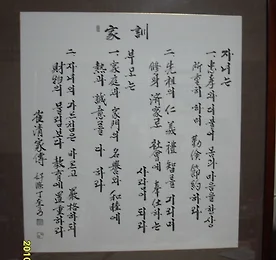 家訓
자녀는
一. 忠孝와 더불어 몸과 마음을 항상
所重히 하며 勤儉節約하라
二. 先祖의 仁義禮智를 기리며
修身齊家로 社會에 奉仕하는
사람이 되라
부모는
一. 家庭과 家門의 名譽와 和睦에
熱과 誠意를 다 하라
二. 자녀의 가르침은 바르고 嚴格하되
財物의 물림보다 敎育에 置重하라
崔淸家傳
2010